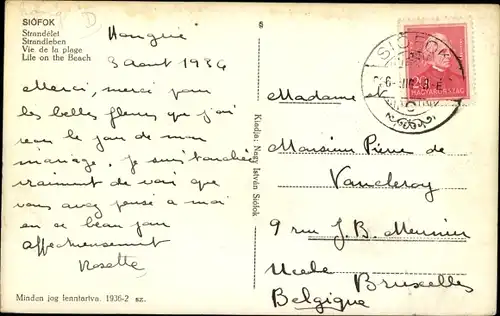 SIÓFOK
Strandélet
Strandleben
Vie de la plage
Life on the Beach
Hongrie
3 Aout 1936
Merci, merci pour
les belles fleurs que j'ai
reçu le jour de mon
mariage. Je suis touchée
vraiment de voir que
vous avez pensé à moi
en ce beau jour
affectueusement
Rosette
Minden jog fenntartva. 1936-2 sz.
Kiadja: Nagy István Siófok
SIÓFOK
MAGYARORSZÁG
Madame et
Monsieur Pierre de
Vancleroy
9 rue J. B. Meunier
Uccle Bruxelles
Belgique